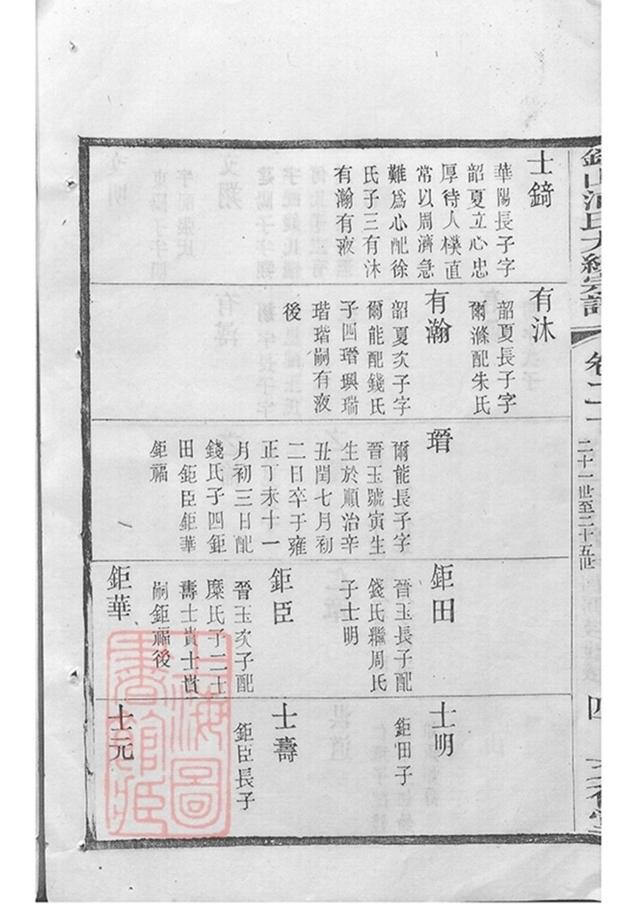 士錡
華陽長子字
韶夏立心忠
厚待人樸直
常以周濟急
難爲心配徐
氏子三有沐
有瀚有液
有沐
韶夏長子字
爾滌配朱氏
有瀚
韶夏次子字
爾能配錢氏
子四瑨興瑞
瑎瑎嗣有液
後
瑨
爾能長子字
晉玉號寅生
生於順治辛
丑閏七月初
二日卒于雍
正丁未十一
月初三日配
錢氏子四鉅
田鉅臣鉅華
鉅福
鉅田
晉玉長子配
錢氏繼周氏
子士明
鉅臣
晉玉次子配
糜氏子二士
壽士貴士貴
嗣鉅福後
鉅華
士明
鉅田子
士壽
鉅臣長子
士元
氏大統宗譜
卷二十
二十一世至二十五世
四
上海圖
書館藏